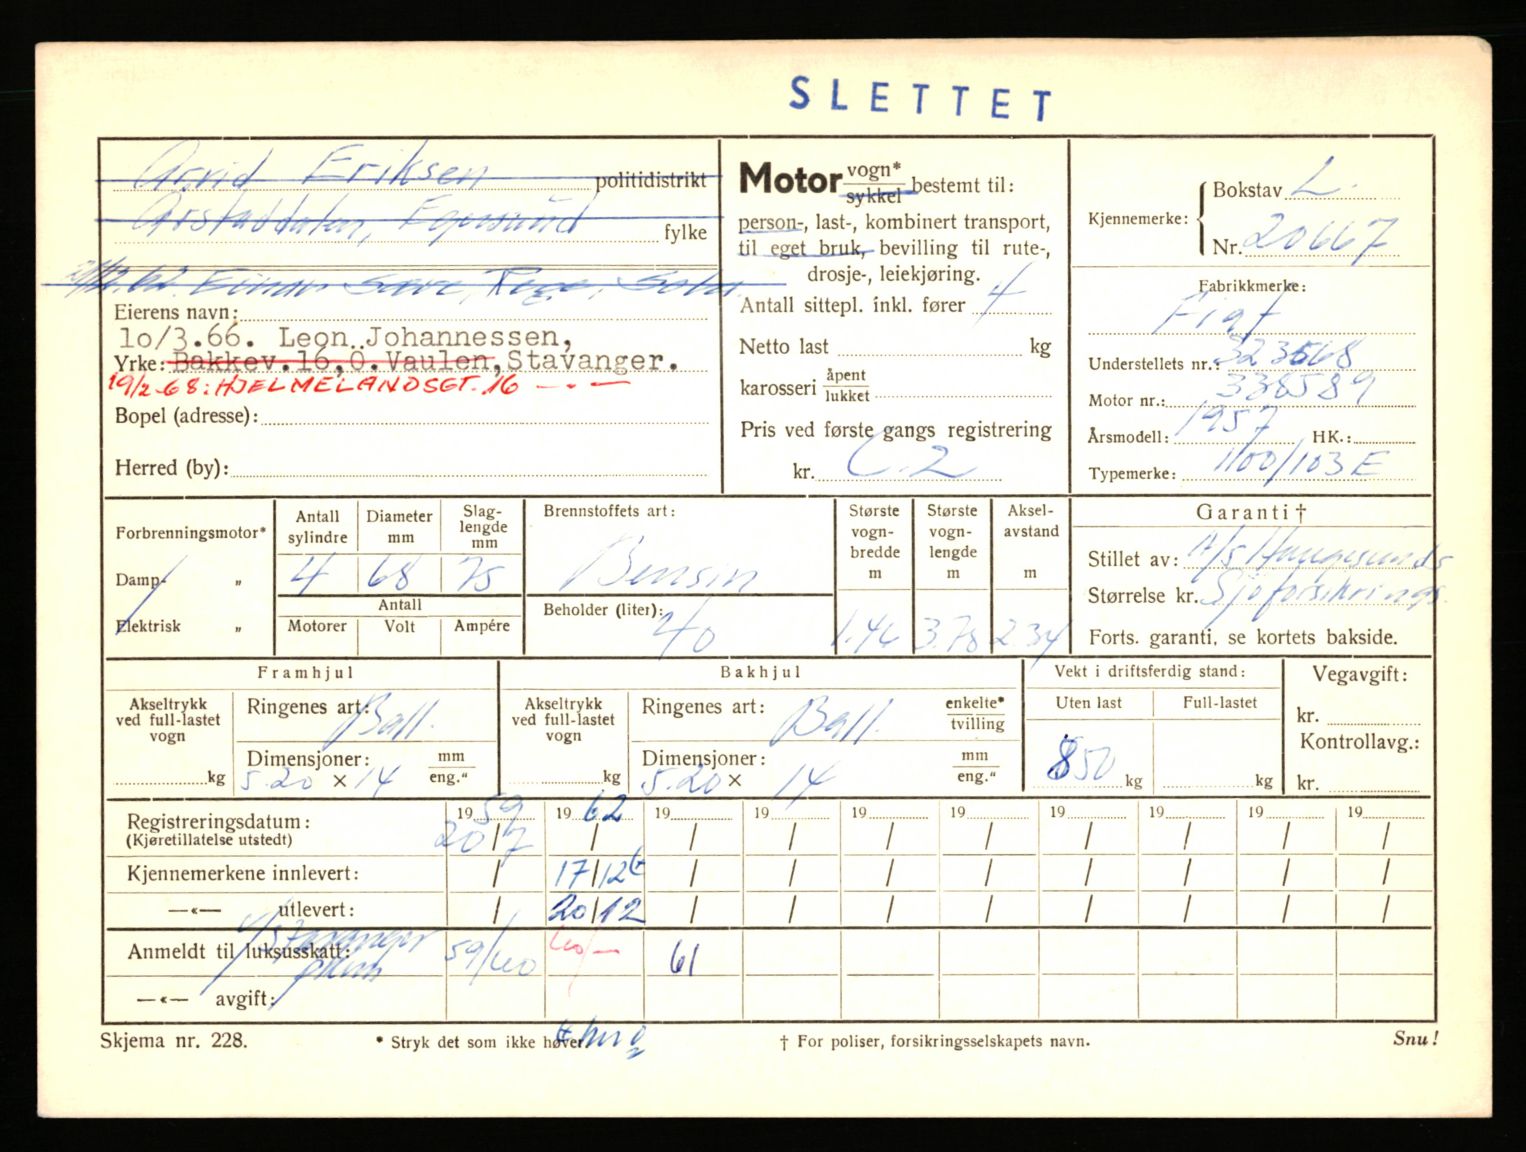 SLETTET
Arvid Eriksen politidistrikt
Årstaddalen, Egersund fylke
Eierens navn:
10/3.66. Leon Johannessen,
Yrke: Bakkev. 16, Ø. Vaulen, Stavanger.
19/2-68: HJELMELANDSGT. 16 — . —
Bopel (adresse):
Herred (by):
Motor vogn* sykkel bestemt til:
person-, last-, kombinert transport,
til eget bruk, bevilling til rute-,
drosje-, leiekjøring.
Antall sittepl. inkl. fører 4
Netto last kg
karosseri åpent lukket
Pris ved første gangs registrering
kr. C.2
Kjennemerke: Bokstav L.
Nr. 20667
Fabrikkmerke:
Fiat
Understellets nr.: 323568
Motor nr.: 338589
Årsmodell: 1957 HK.:
Typemerke: 1100/103 E
Forbrenningsmotor*
Damp- „
Elektrisk „
Antall sylindre Diameter mm Slaglengde mm
4 68 75
Antall
Motorer Volt Ampére
Brennstoffets art:
Bensin
Beholder (liter):
40
Største vogn-bredde m Største vogn-lengde m Aksel-avstand m
1.46 3.78 2.34
Garanti †
Stillet av: A/S Haugesunds
Størrelse kr. Sjøforsikrings.
Forts. garanti, se kortets bakside.
Framhjul
Akseltrykk ved full-lastet vogn
kg
Ringenes art: Ball.
Dimensjoner: mm eng."
5.20 × 14
Bakhjul
Akseltrykk ved full-lastet vogn
kg
Ringenes art: Ball. enkelte* tvilling
Dimensjoner: mm eng."
5.20 × 14
Vekt i driftsferdig stand:
Uten last Full-lastet
850 kg kg
Vegavgift:
kr.
Kontrollavg.:
kr.
19 59 19 62 19 19 19 19 19 19 19 19
Registreringsdatum: 20/7 / / / / / / / / /
(Kjøretillatelse utstedt)
Kjennemerkene innlevert: / 17/12 / / / / / / / /
—«— utlevert: / 20/12 / / / / / / / /
Anmeldt til luksusskatt: 59/60 61
—«— avgift:
Skjema nr. 228. * Stryk det som ikke høver. † For poliser, forsikringsselskapets navn. Snu!